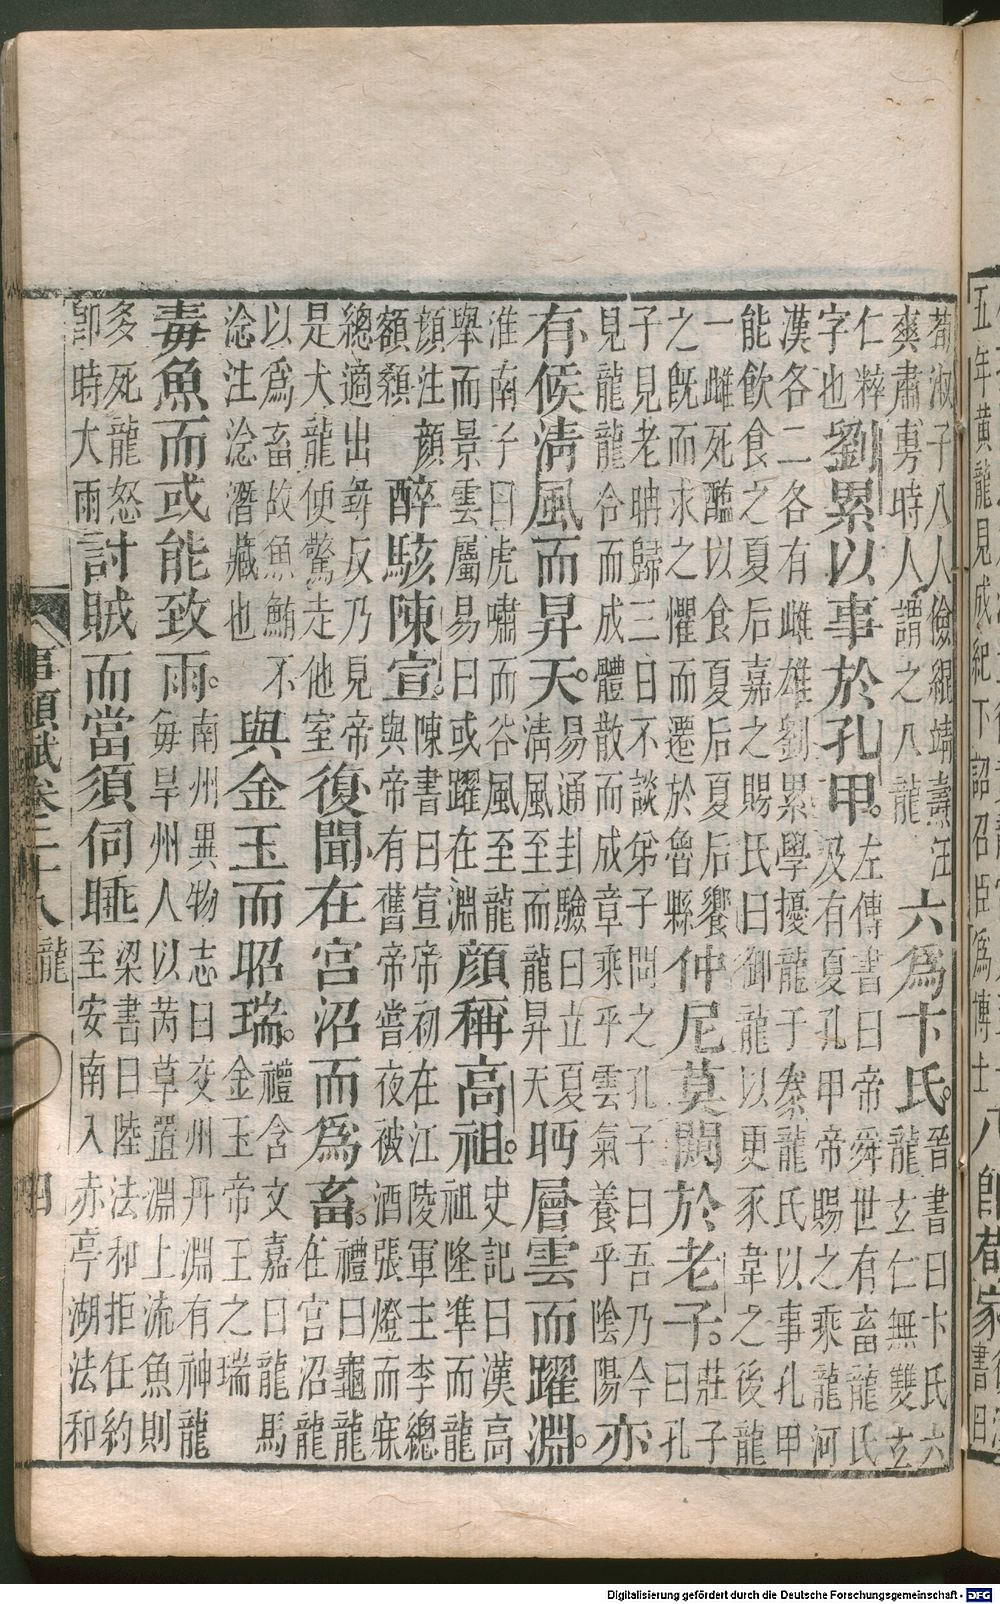 五年黃龍見成紀下詔召臣爲博士八卽荀家
荀淑子八人儉緄靖燾汪
爽肅旉時人謂之八龍
六爲卞氏。
晉書曰卞氏六
龍玄仁無雙玄
仁粹
字也
劉累以事於孔甲。
左傳書曰帝舜世有畜龍氏
及有夏孔甲帝賜之乘龍河
漢各二各有雌雄劉累學擾龍于豢龍氏以事孔甲
能飲食之夏后嘉之賜氏曰御龍以更豕韋之後龍
一雌死醢以食夏后夏后饗
之旣而求之懼而遷於魯縣
仲尼莫闚於老子。
莊子
曰孔
子見老聃歸三日不談弟子問之孔子曰吾乃今
見龍龍合而成體散而成章乘乎雲氣養乎陰陽
亦
有候淸風而昇天。
易通卦驗曰立夏
淸風至而龍昇天
眄層雲而躍淵。
淮南子曰虎嘯而谷風至龍
舉而景雲屬易曰或躍在淵
顏稱高祖。
史記曰漢高
祖隆準而龍
顔注
額顙
顔
醉駭陳宣。
陳書曰宣帝初在江陵軍主李總
與帝有舊帝嘗夜被酒張燈而寐
總適出尋反乃見帝
是大龍便驚走他室
復聞在宮沼而爲畜。
禮曰龜龍
在宮沼龍
以爲畜故魚鮪不
淰注淰潛藏也
與金玉而昭瑞。
禮含文嘉曰龍馬
金玉帝王之瑞
毒魚而或能致雨。
南州異物志曰交州丹淵有神龍
每旱州人以芮草置淵上流魚則
多死龍怒
卽時大雨
討賊而當須伺睡
梁書曰陸法和拒任約
至安南入赤亭湖法和
事類賦卷二十八
龍
四
Digitalisierung gefördert durch die Deutsche Forschungsgemeinschaft - DFG